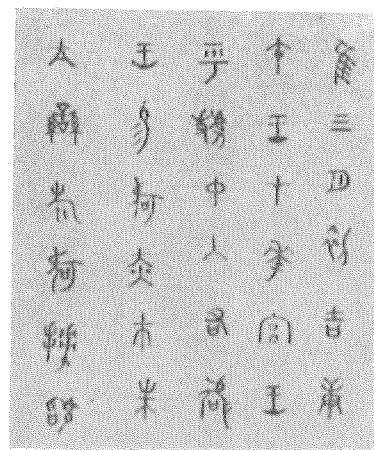 隹三月初吉庚
午王才華宮王
乎虢中入右何
王易何赤巿朱
亢䜌旂何拜稽